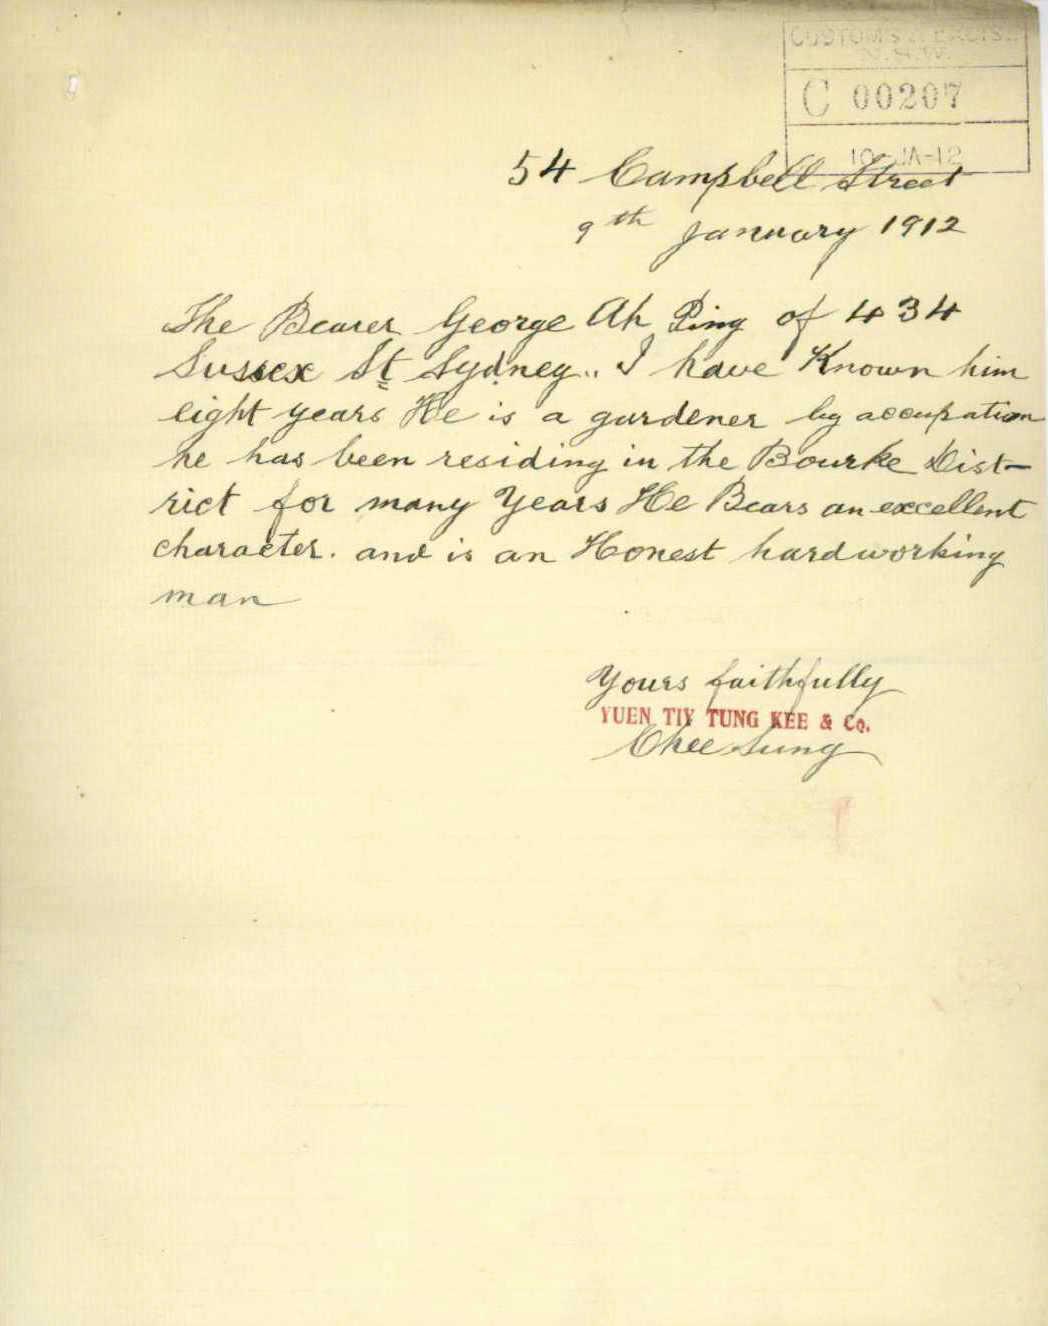 CUSTOMS & EXCISE
N.S.W.
C 00207
10-JA-12
54 Campbell Street
9th January 1912
The Bearer George Ah Ping of 434
Sussex St Sydney.. I have Known him
eight years He is a gardener by accupation
he has been residing in the Bourke Dist-
rict for many Years He Bears an excellent
character. and is an Honest hardworking
man
Yours faithfully
YUEN TIY TUNG KEE & Co.
Chee Sung